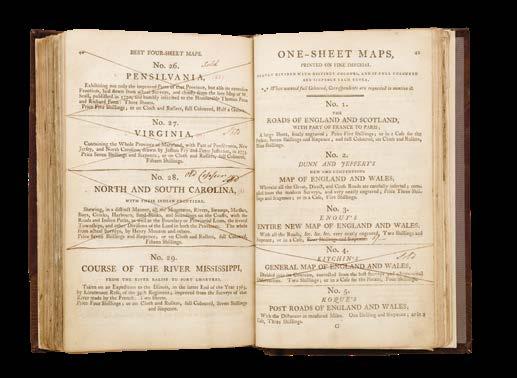 40 BEST FOUR-SHEET MAPS.
No. 26. Sold
PENSILVANIA,
Exhibiting not only the improved Parts of that Province, but also its extensive
Frontiers, laid down from actual Surveys, and chiefly from the late Map of W.
Scull, published in 1770; and humbly inscribed to the Honourable Thomas Penn
and Richard Penn: Three Sheets.
Price Five Shillings; or on Cloth and Rollers, full Coloured, Half a Guinea.
No. 27.
VIRGINIA,
Containing the Whole Province of Maryland, with Part of Pensilvania, New
Jersey, and North Carolina; drawn by Joshua Fry and Peter Jefferson, in 1775.
Price Seven Shillings and Sixpence; or on Cloth and Rollers, full Coloured,
Fifteen Shillings.
No. 28. old Copper
NORTH AND SOUTH CAROLINA,
WITH THEIR INDIAN FRONTIERS,
Shewing, in a distinct Manner, all the Mountains, Rivers, Swamps, Marshes,
Bays, Creeks, Harbours, Sand-Banks, and Soundings on the Coasts, with the
Roads and Indian Paths, as well as the Boundary or Provincial Lines, the several
Townships, and other Divisions of the Land in both the Provinces. The whole
from actual Surveys, by Henry Mouzon and others.
Price Seven Shillings and Sixpence; or on Cloth and Rollers, full Coloured,
Fifteen Shillings.
No. 29.
COURSE OF THE RIVER MISSISSIPPI,
FROM THE RIVER BALISE TO FORT CHARTRES,
Taken on an Expedition to the Illinois, in the latter End of the Year 1765,
by Lieutenant Ross, of the 34th Regiment; improved from the Surveys of that
River made by the French. Two Sheets.
Price Four Shillings; or on Cloth and Rollers, full Coloured, Seven Shillings
and Sixpence.
ONE-SHEET MAPS, 41
PRINTED ON FINE IMPERIAL
When wanted full Coloured, Correspondents are requested to mention it.
No. 1.
THE
ROADS OF ENGLAND AND SCOTLAND,
WITH PART OF FRANCE TO PARIS;
A large Sheet, finely engraved; Price Five Shillings; or in a Case for the
Pocket, Seven Shillings and Sixpence; and full Coloured, on Cloth and Rollers,
Nine Shillings.
No. 2.
DUNN AND JEFFERY'S
NEW AND COMPENDIOUS
MAP OF ENGLAND AND WALES,
Wherein all the Great, Direct, and Cross Roads are carefully inserted;
from the modern Surveys, and very neatly engraved, Price Three Shillings
and Sixpence; or in a Case, Five Shillings.
No. 3.
ENOUY'S
ENTIRE NEW MAP OF ENGLAND AND WALES,
With all the Roads, &c. &c. &c. very neatly engraved, Two Shillings and
Sixpence; or in a Case, Four Shillings and Sixpence.
No. 4.
KITCHIN'S
GENERAL MAP OF ENGLAND AND WALES,
Divided into its Counties, corrected from the best Surveys and
Two Shillings; or in a Case for the Pocket, Four Shillings.
No. 5.
ROQUE'S
POST ROADS OF ENGLAND AND WALES,
With the Distances in measured Miles. One Shilling and Sixpence; or in a
Case, Three Shillings.
G